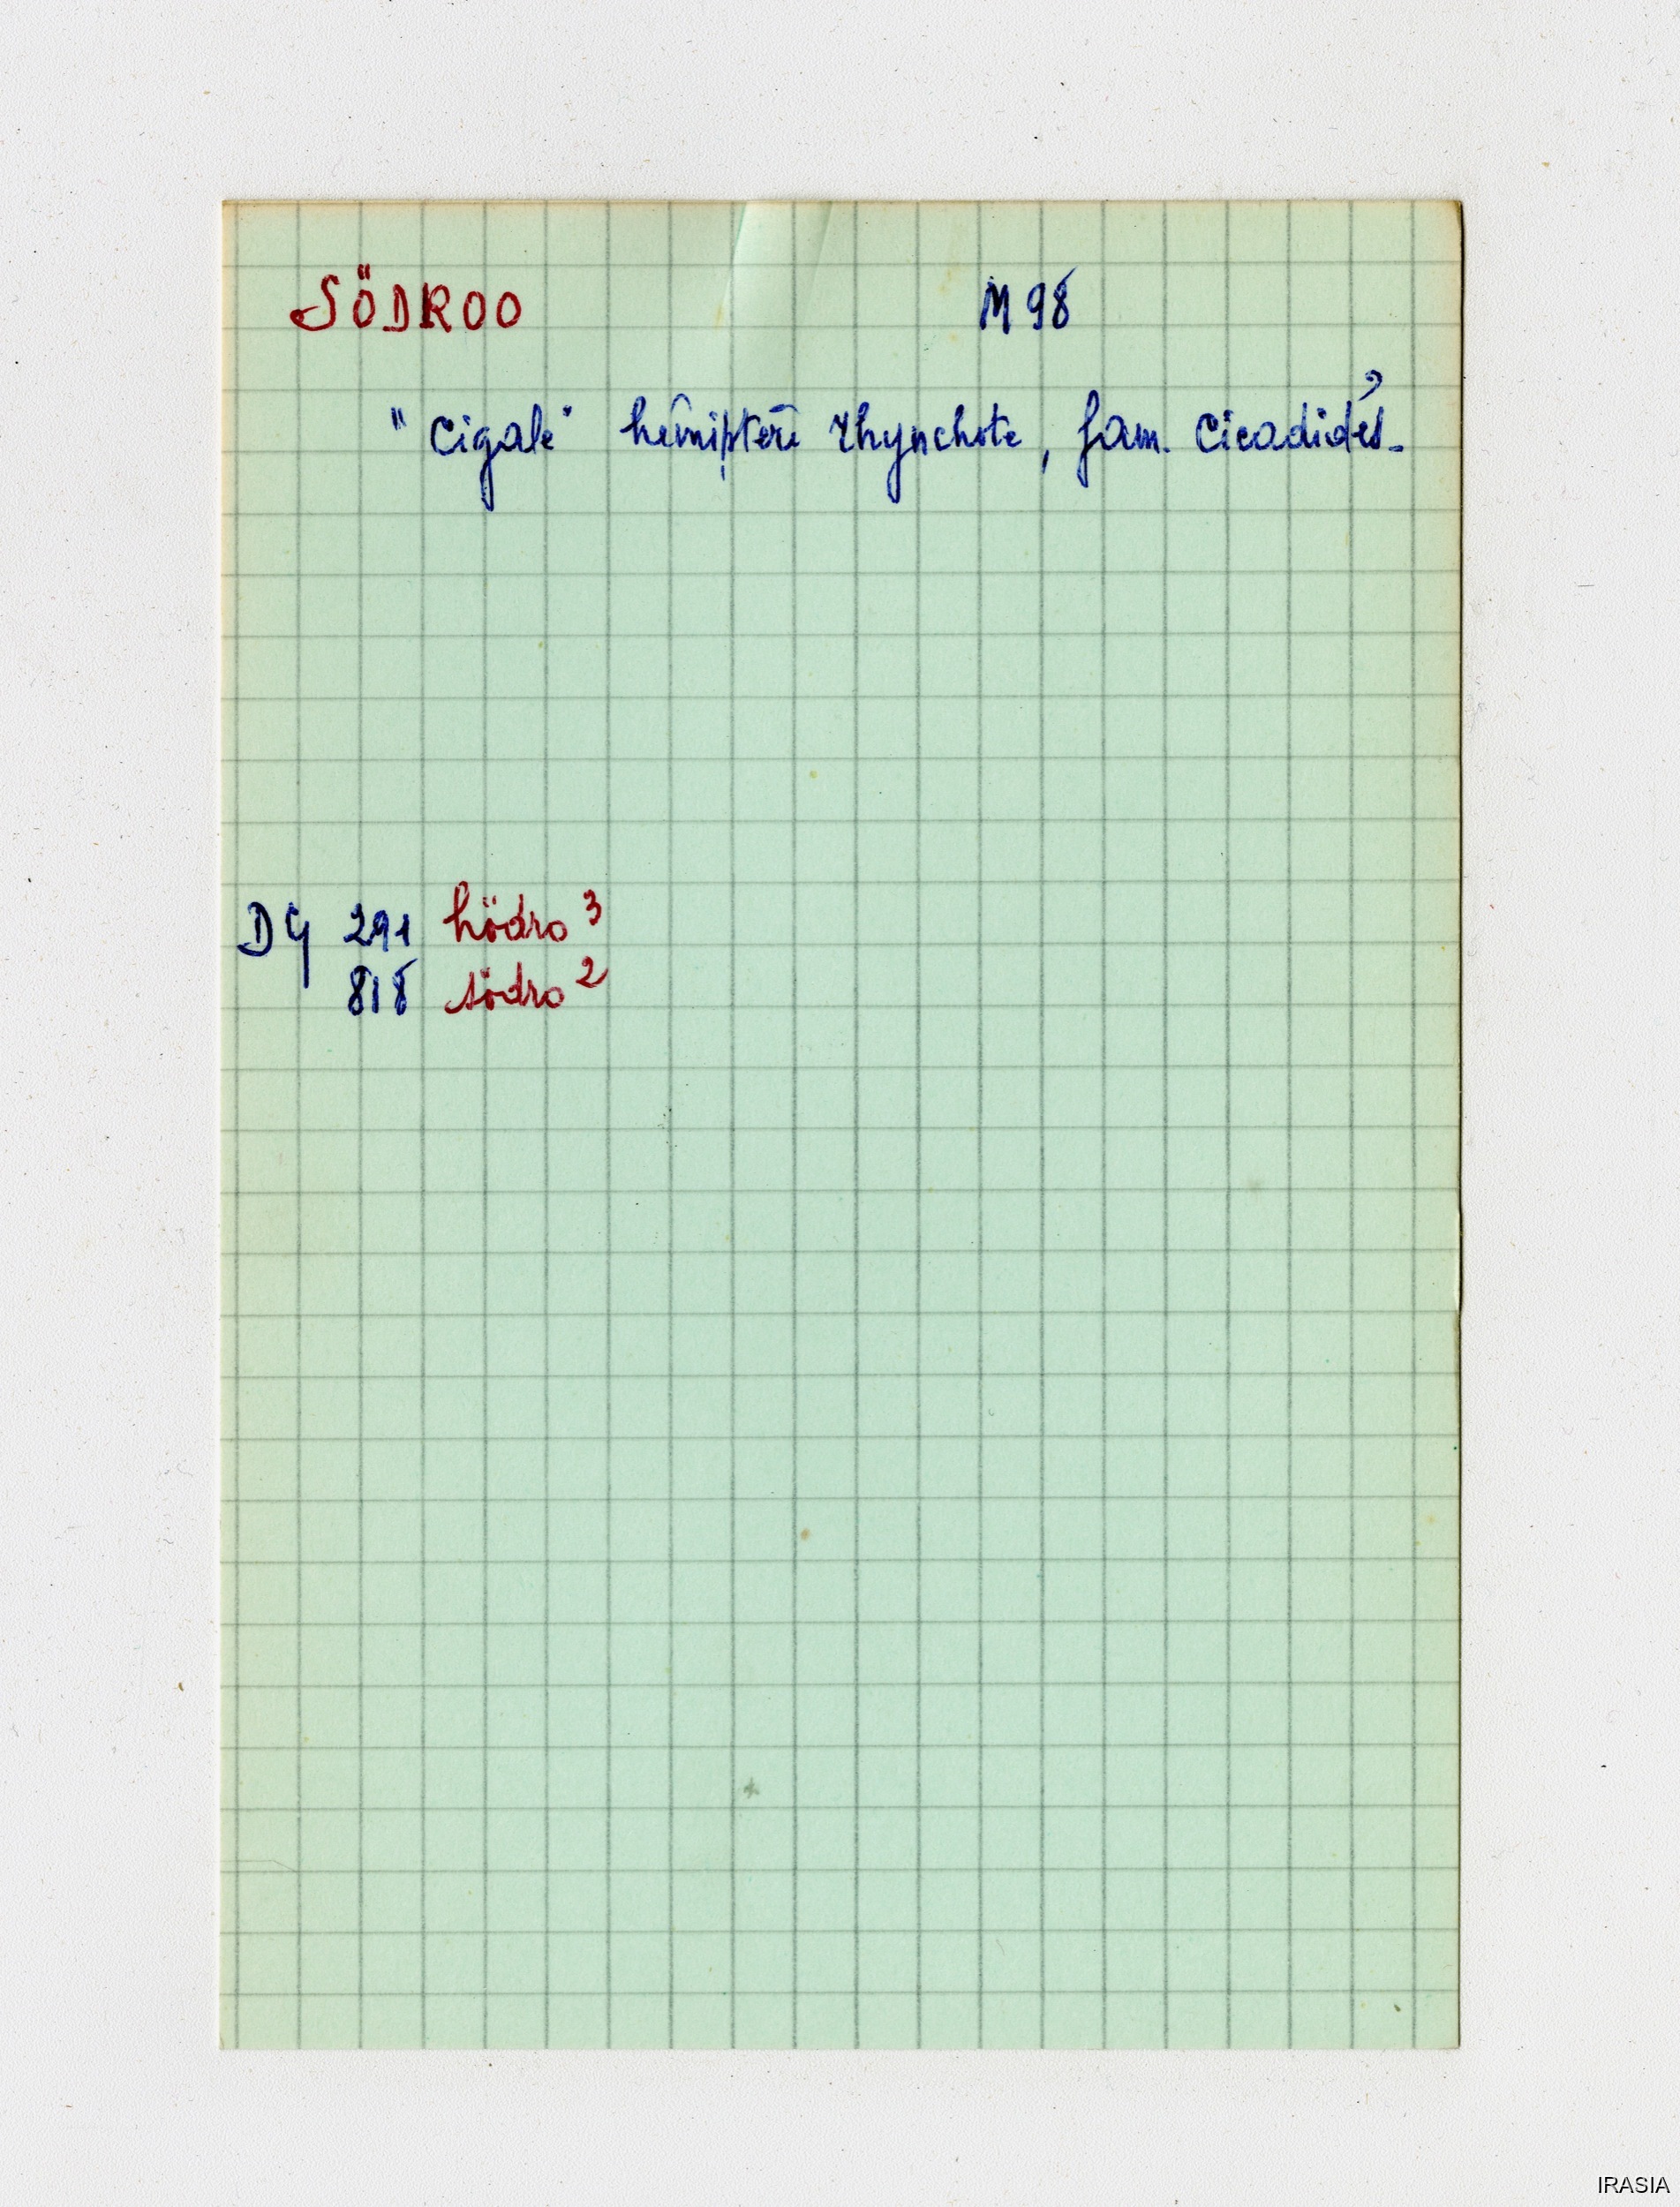 SÖDROO M 98
"cigale" hémiptère rhynchote, fam. Cicadidés.
DG 291 hödro 3
818 södro 2
IRASIA